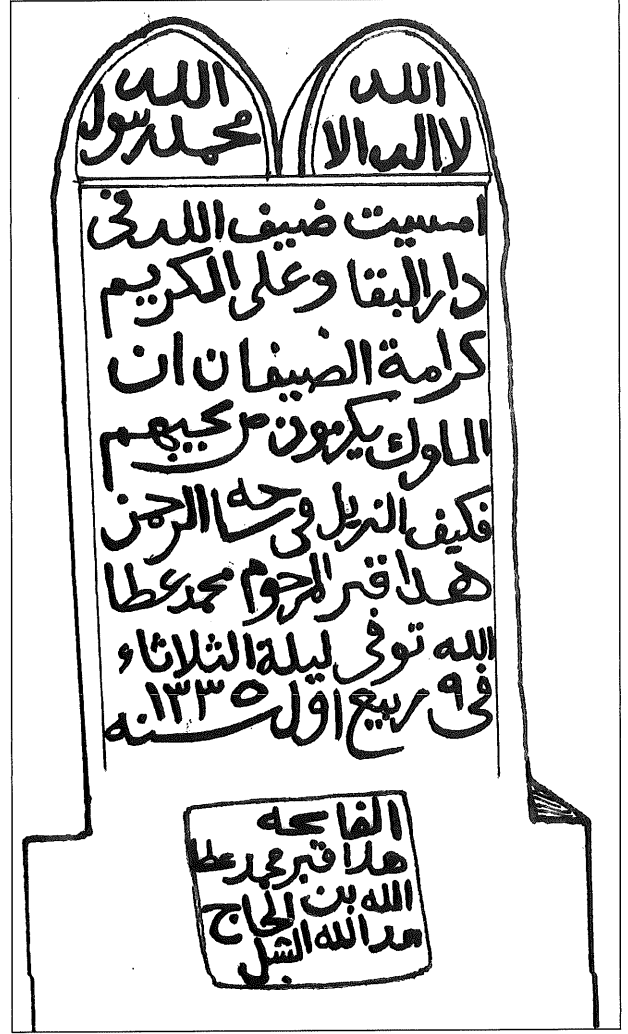 الله
لا اله الا
الله
محمد رسول
امسيت ضيف الله في
دار البقا وعلى الكريم
كرامة الضيفان ان
الملوك يكرمون من يجيهم
فكيف النزيل في ساحه الرحمن
هدا قبر المرحوم محمد عطا
الله توفى ليلة الثلاثاء
في ٩ ربيع اول سنه ١٣٣٥
الفاتحه
هدا قبر محمد عطا
الله بن الحاج
الله الشبل